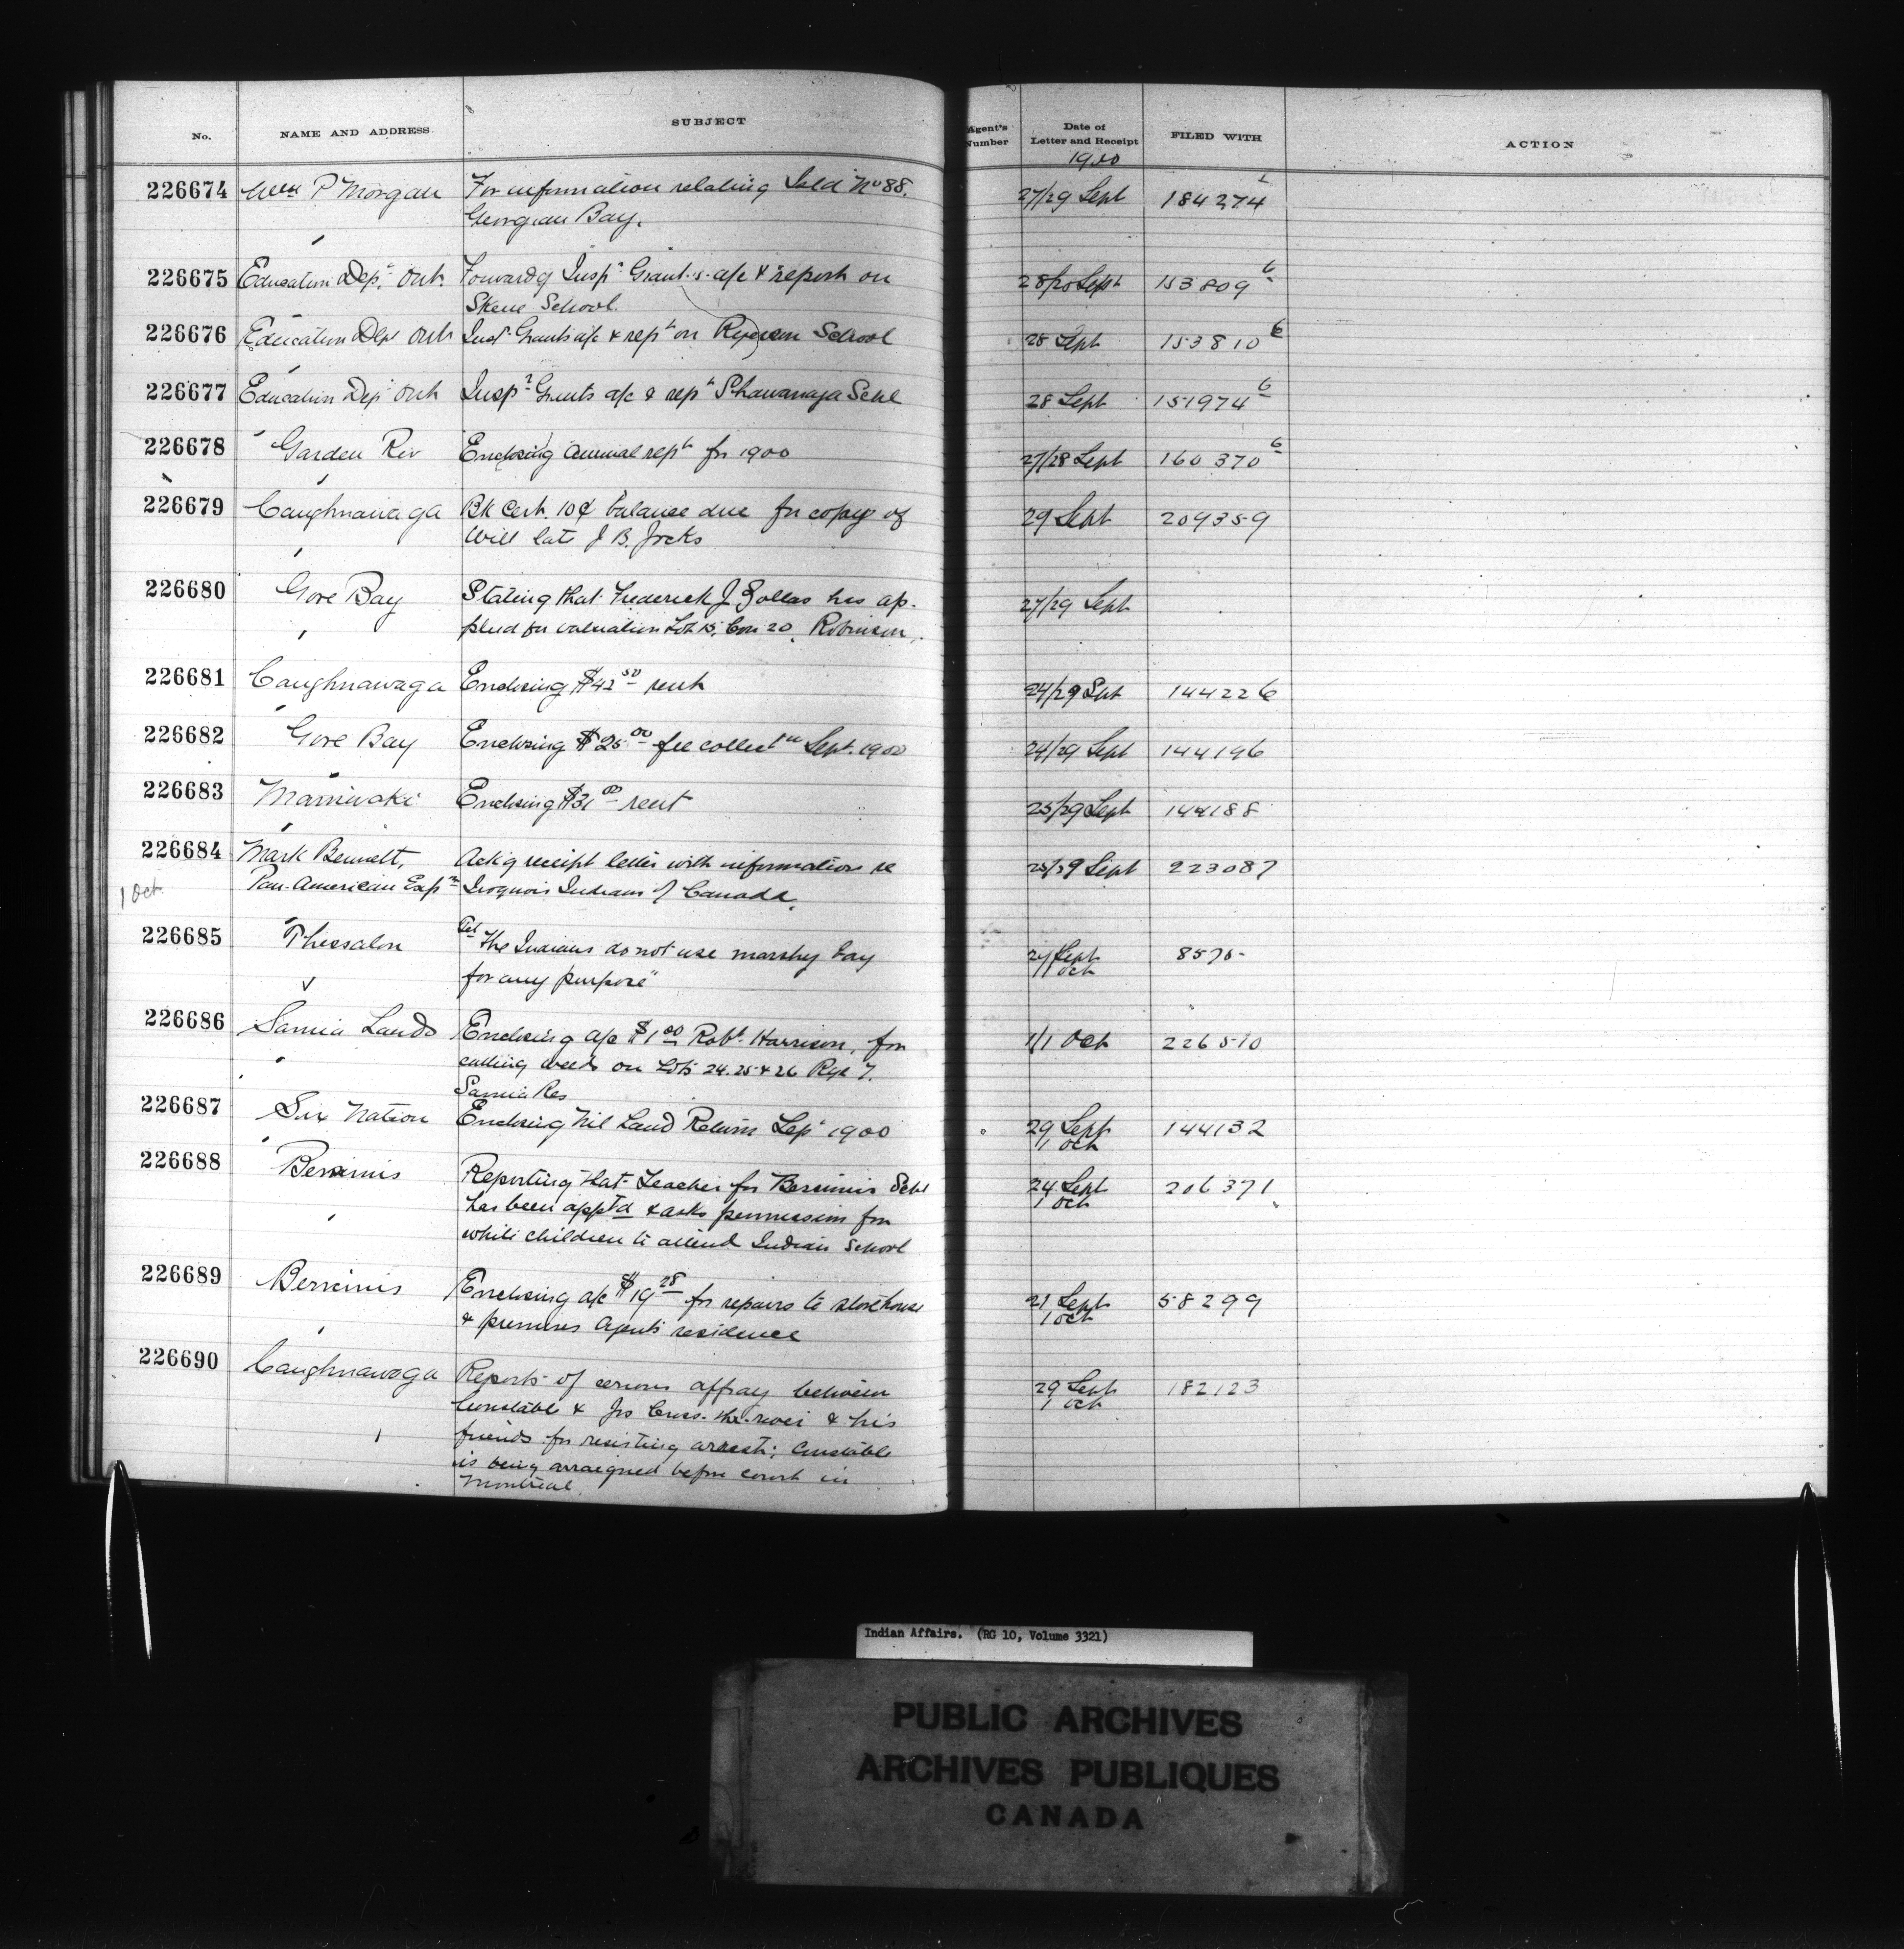 No. NAME AND ADDRESS SUBJECT Agent's Number Date of Letter and Receipt FILED WITH ACTION
1900
226674 Wm P Morgan For information relating Isld No 88. 27/29 Sept 184274 1
Georgian Bay.
226675 Education Dept. Ont. Forwardg Inspr Grant's a/c & report on 28/28 Sept 153809 6
Skene School.
226676 Education Dept Ont Insr Grants a/c & rept on Ryerson School 28 Sept 153810 6
226677 Education Dept Ont Inspr Grants a/c & rept Shawanaga Schl 28 Sept 151974 6
226678 Garden Riv Enclosing Annual rept for 1900 27/28 Sept 160370 6
226679 Caughnawaga Bk Cert. 10¢ balance due for copy of 29 Sept 209359
Will late J B. Jocks
226680 Gore Bay Stating that Frederick J has ap- 27/29 Sept
plied for valuation Lot 15, Con 20, Robinson.
226681 Caughnawaga Enclosing $42 50 rent 24/29 Sept 144226
226682 Gore Bay Enclosing $25 00 fee collectn Sept. 1900 24/29 Sept 144196
226683 Maniwaki Enclosing $31 00 rent 25/29 Sept 144188
226684 Mark Bennett, Ackg receipt letter with information re 28/29 Sept 223087
1 Oct. Pan-American Expn Iroquois Indians of Canada.
226685 Thessalon Tel "The Indians do not use marshy bay Sept 8575-
for any purpose" 1 Oct
226686 Sarnia Lands Enclosing a/c $1 00 Robt. Harrison, for 1/1 Oct 226510
cutting weeds on Lots 24. 25 & 26 Rge 7.
Sarnia Res
226687 Six Nation Enclosing Nil Land Return Sept 1900 29 Sept 144132
1 Oct
226688 Bersimis Reporting that Teacher for Bersimis Schl 24 Sept 206371
has been apptd & asks permission for 1 Oct
white children to attend Indian School
226689 Bersimis Enclosing a/c $19 28 for repairs to storehouse 21 Sept 58299
& premises Agent's residence 1 Oct
226690 Caughnawaga Reports of serious affray between 29 Sept 182123
Constable & Jos Cross-the-river & his 1 Oct
friends for resisting arrest; Constable
is being arraigned before court in
Montreal.
Indian Affairs. (RG 10, Volume 3321)
PUBLIC ARCHIVES
ARCHIVES PUBLIQUES
CANADA